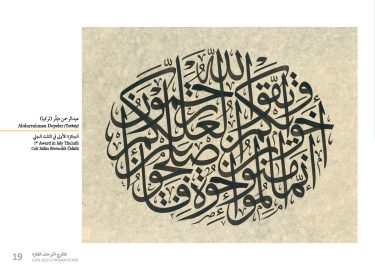 إنما المؤمنون إخوة فأصلحوا بين أخويكم واتقوا الله لعلكم ترحمون
عبدالرحمن دبلر (تركيا)
Abdurrahman Depeler (Turkey)
الجائزة الأولى في الثلث الجلي
1st Award in Jaly Thuluth
Celi Sülüs Birincilik Ödülü
19
كتالوج اللوحات الفائزة